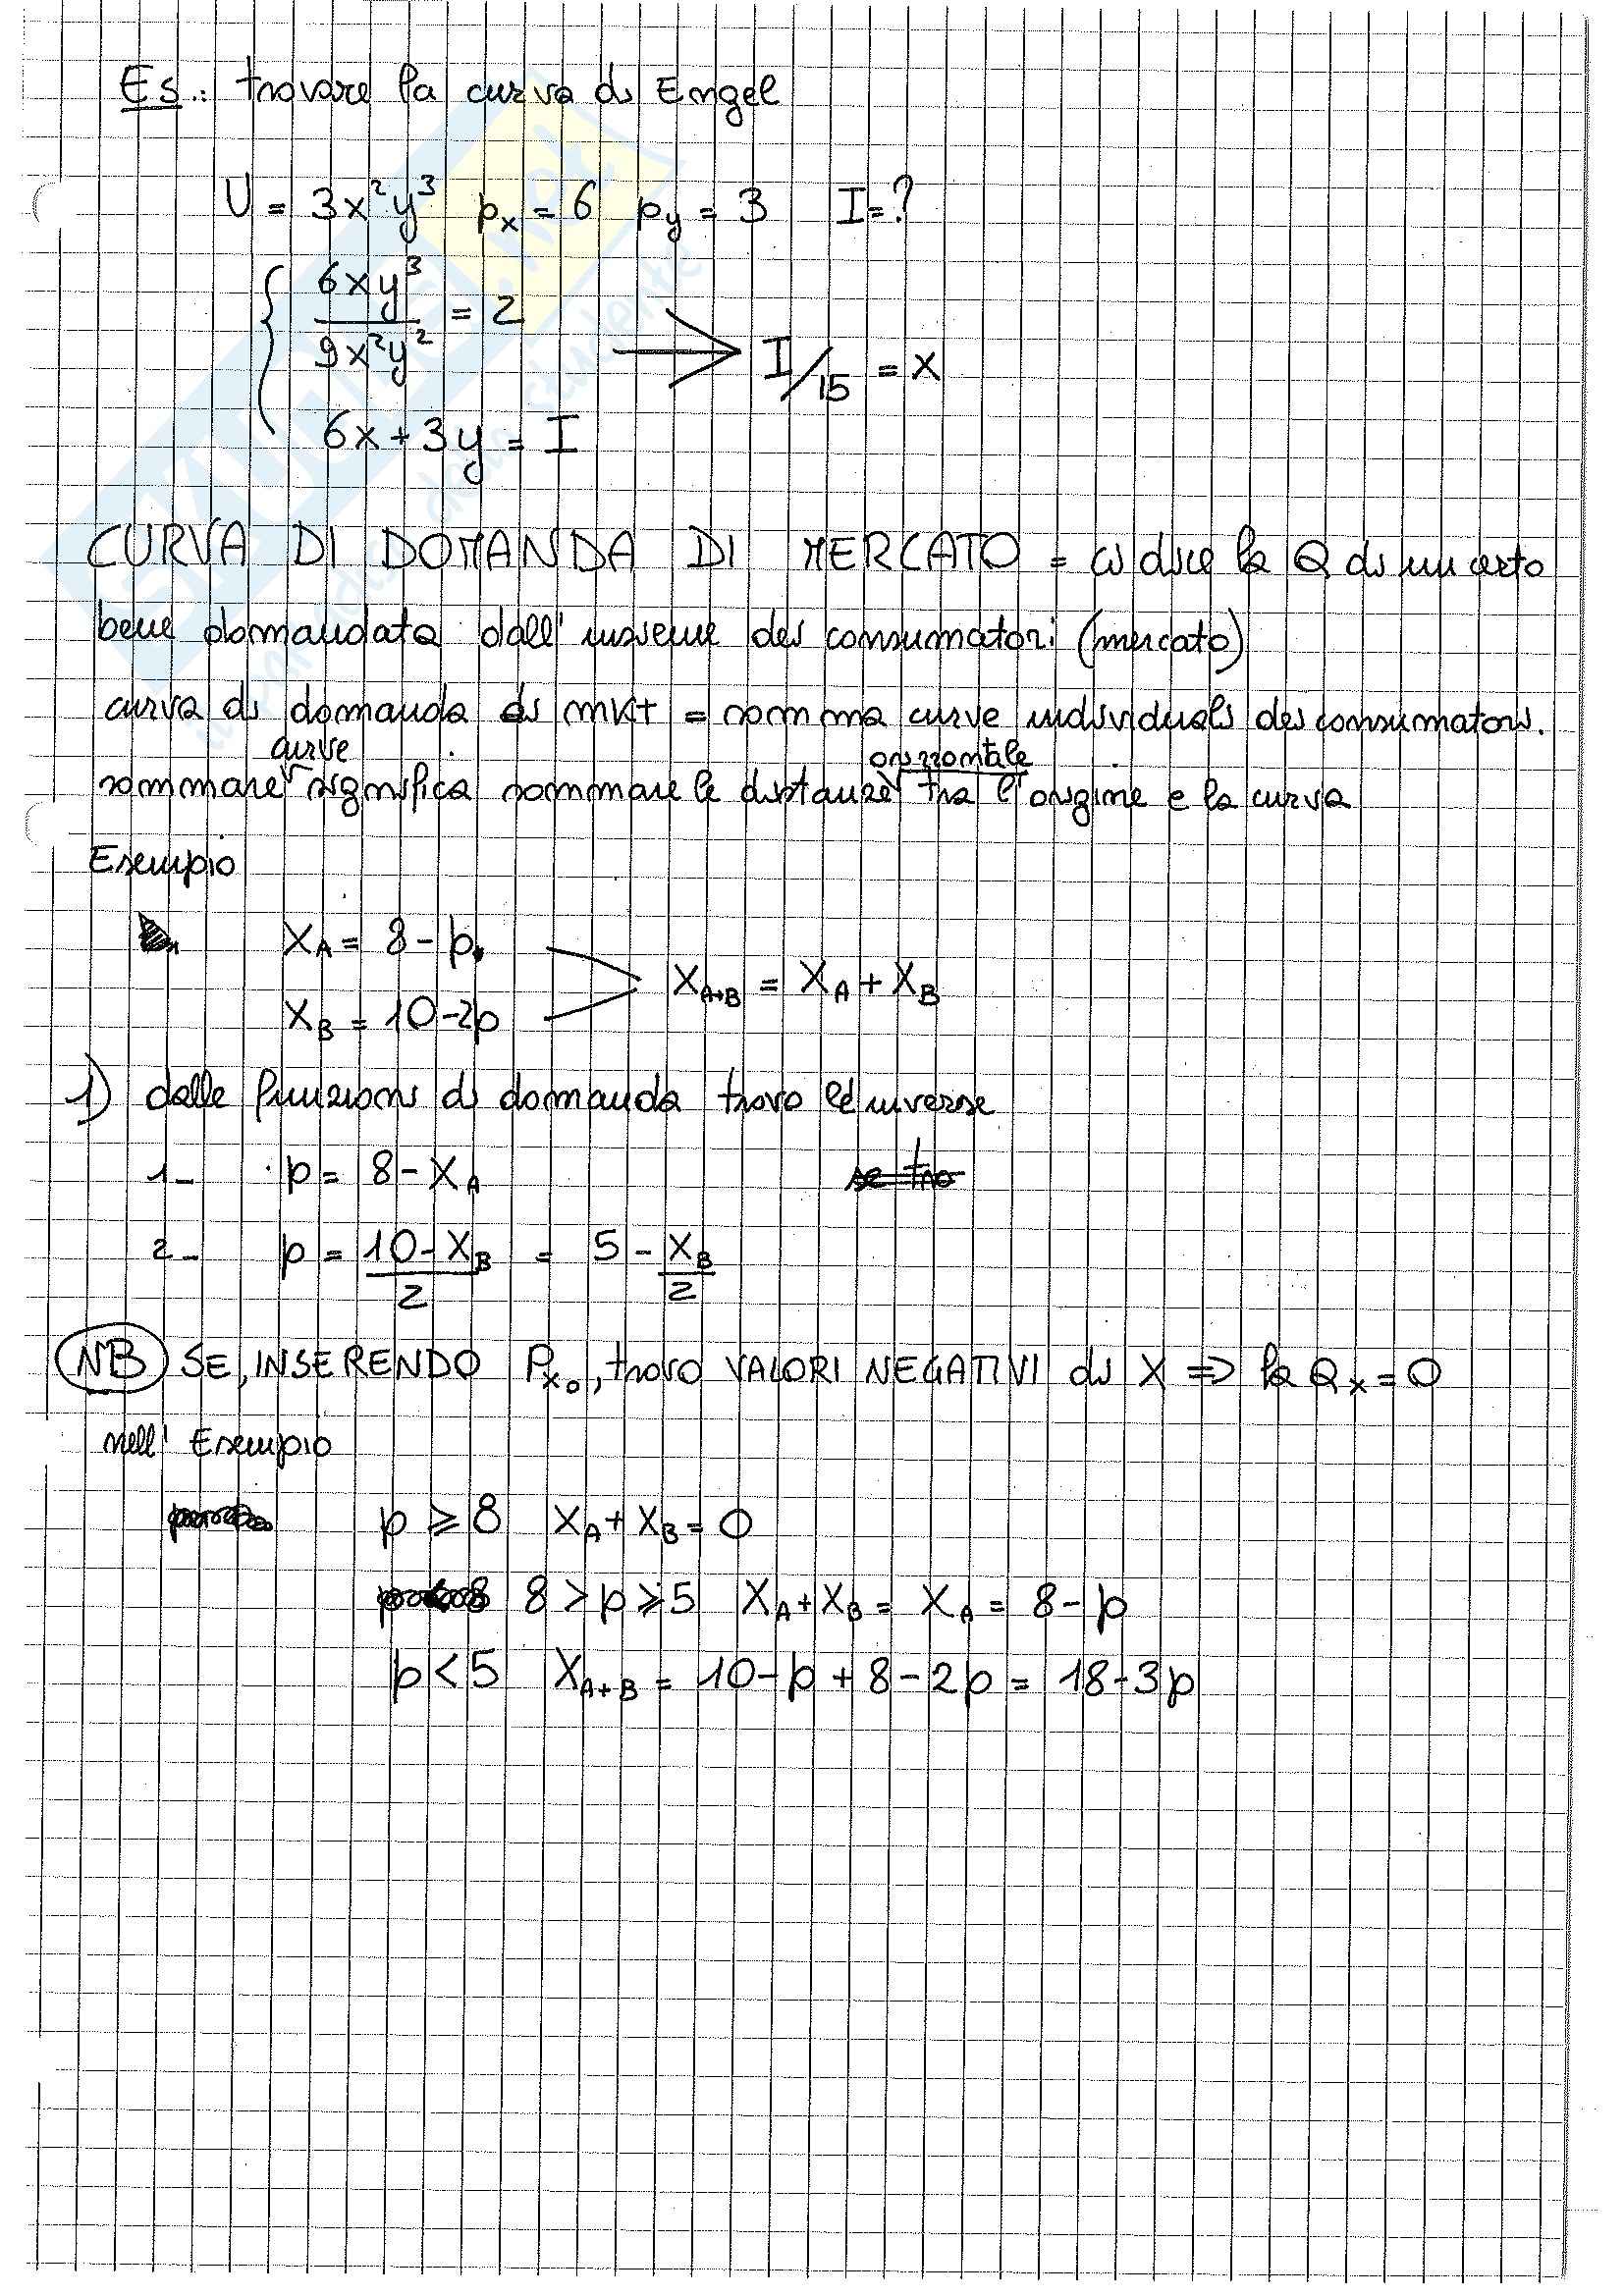 Es.: trovare la curva di Engel
U = 3x²y³ px = 6 py = 3 I = ?
6xy³ / 9x²y² = 2
I/15 = x
6x + 3y = I
CURVA DI DOMANDA DI MERCATO = ci dice la Q di un certo
bene domandata dall' insieme dei consumatori (mercato)
curva di domanda di mkt = somma curve individuali dei consumatori.
sommare curve significa sommare le distanze orizzontale tra l'origine e la curva
Esempio
XA = 8 - p
XB = 10 - 2p
XA+B = XA + XB
1) dalle funzioni di domanda trovo le inverse
1- p = 8 - XA
2- p = (10 - XB)/2 = 5 - XB/2
NB SE, INSERENDO Px0, trovo VALORI NEGATIVI di X ⇒ la Qx = 0
nell' Esempio
p ≥ 8 XA + XB = 0
8 > p ≥ 5 XA + XB = XA = 8 - p
p < 5 XA+B = 10 - p + 8 - 2p = 18 - 3p